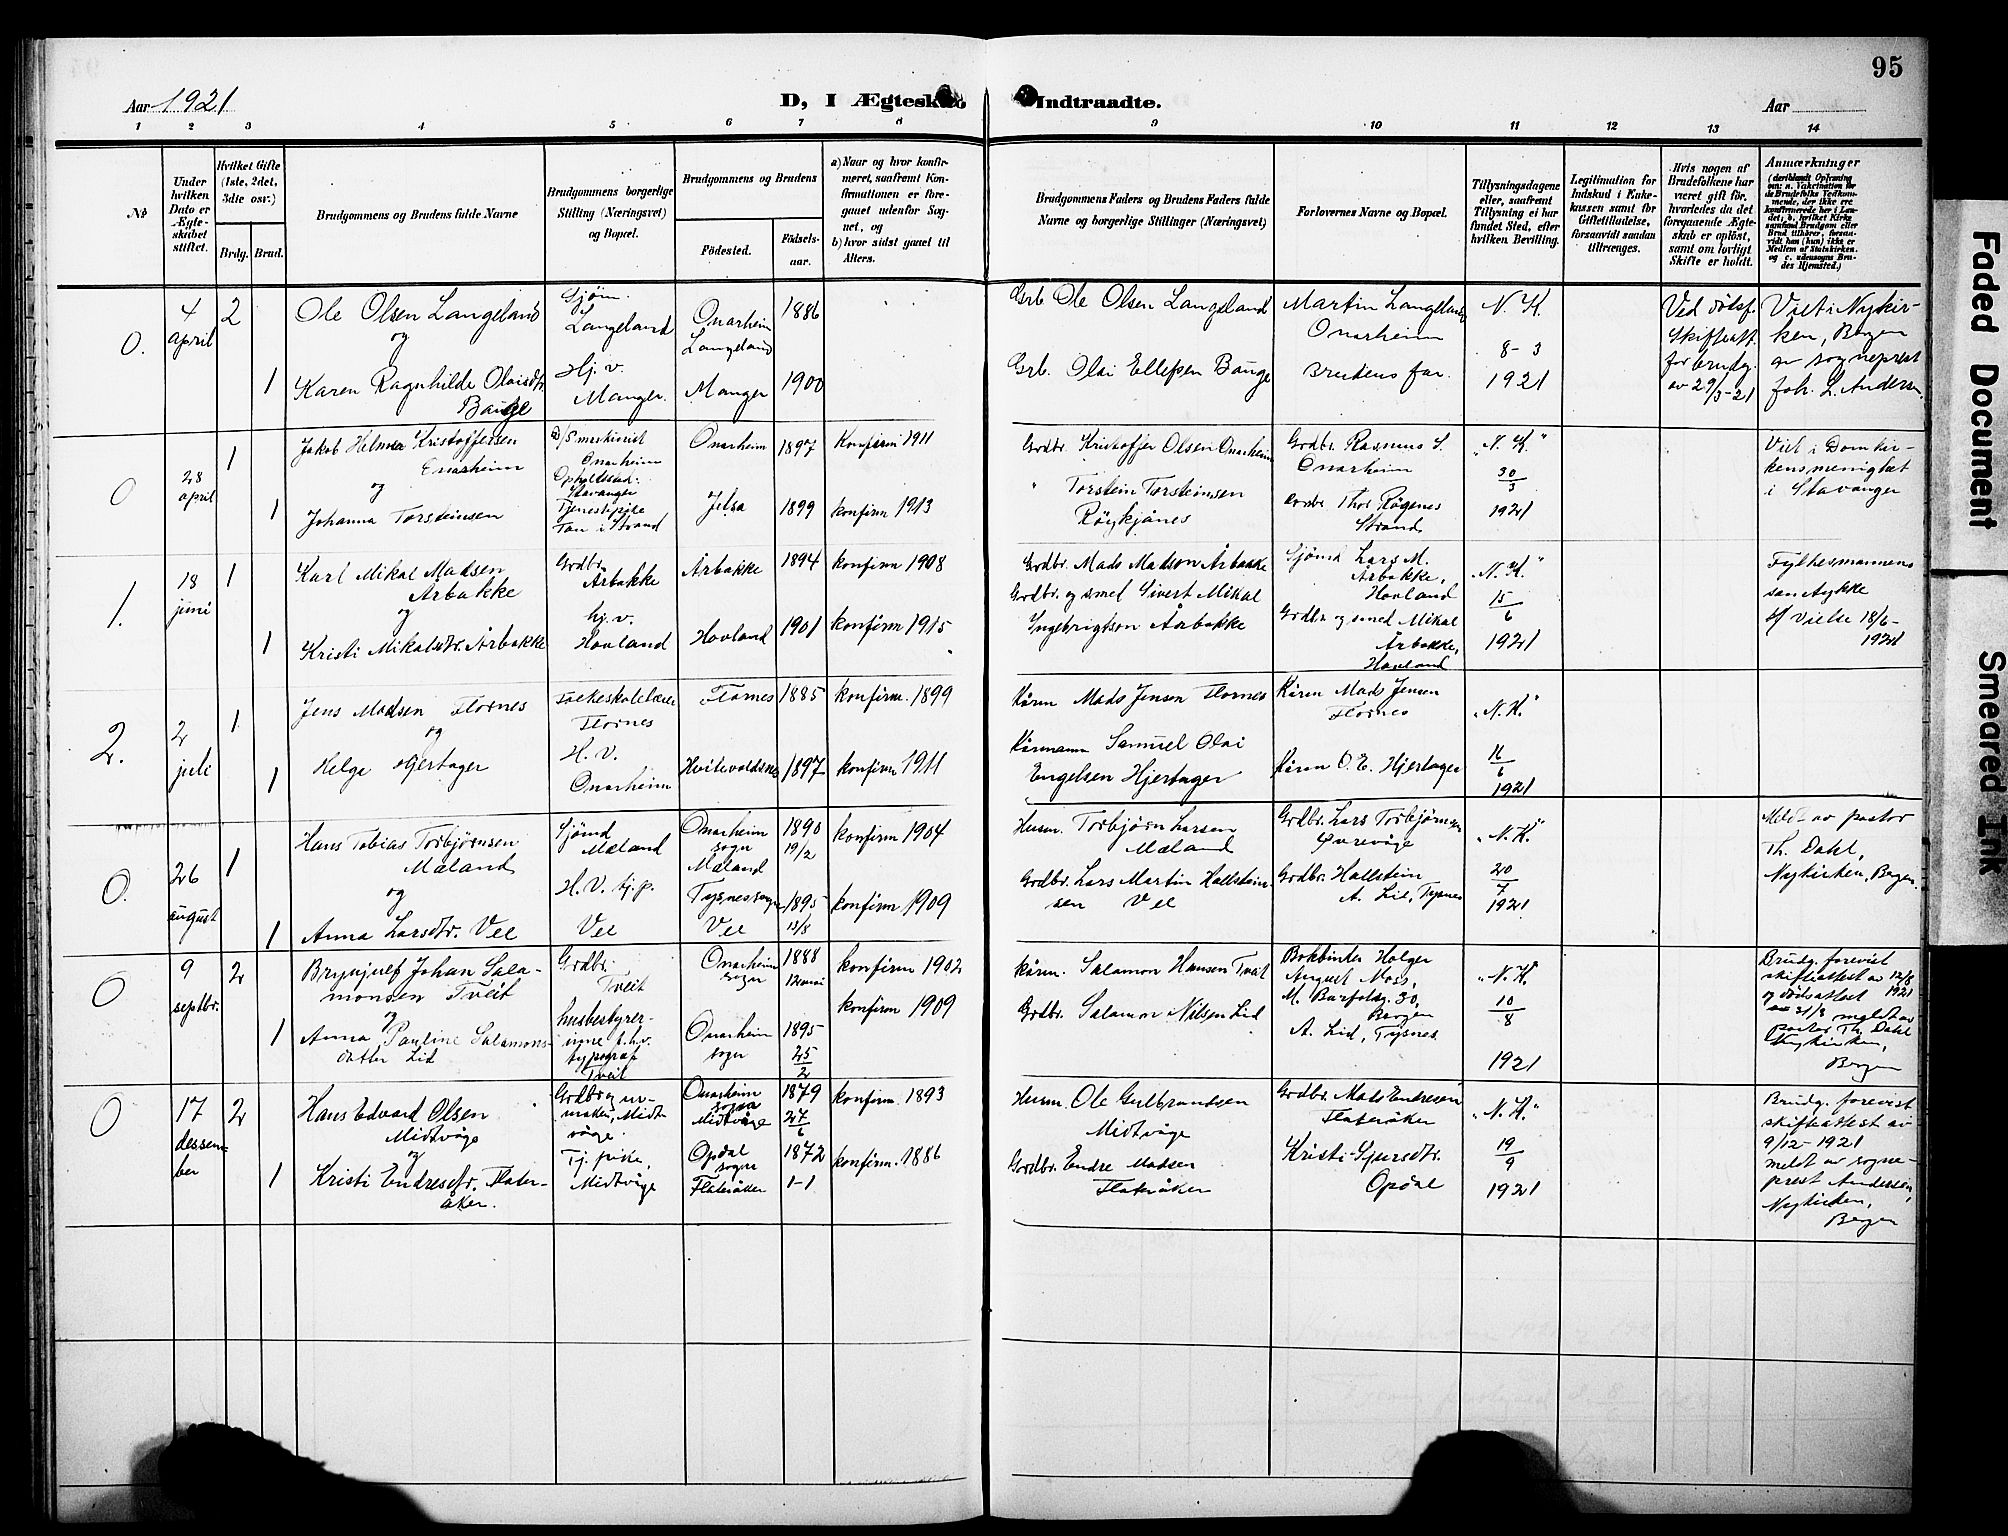 95
Aar 1921
D, I Ægteskab Indtraadte.
Aar
1 2 3 4 5 6 7 8 9 10 11 12 13 14
№
Under hvilken Dato er Ægteskabet stiftet.
Hvilket Gifte (1ste, 2det, 3die osv.)
Brdg. Brud.
Brudgommens og Brudens fulde Navne
Brudgommens borgerlige Stilling (Næringsvei) og Bopæl.
Brudgommens og Brudens
Fødested.
Fødsels-aar.
a) Naar og hvor konfirmeret, saafremt Konfirmationen er foregaaet udenfor Sognet, og
b) hvor sidst gaaet til Alters.
Brudgommens Faders og Brudens Faders fulde Navne og borgerlige Stillinger (Næringsvei)
Forlovernes Navne og Bopæl.
Tillysningsdagene eller, saafremt Tillysning ei har fundet Sted, efter hvilken Bevilling.
Legitimation for Indskud i Enkekassen samt for Giftetilladelse, forsaavidt saadan tiltrænges.
Hvis nogen af Brudefolkene har været gift før, hvorledes da det foregaaende Ægteskab er opløst, samt om lovligt Skifte er holdt.
Anmærkninger
0. 4 april 2
Ole Olsen Langeland
og
1 Karen Ragnhilde Olaisdtr. Bauge
Sjøm. Langeland
Hj. v. Manger.
Onarheim Langeland 1886
Manger 1900
Grb. Ole Olsen Langeland
Grb. Olai Ellefsen Bauge
Martin Langeland Onarheim
Brudens far.
N. K.
8-3
1921
Ved dødsf.
Skifteatt.
for brudg.
av 29/3-21
Viet i Nykir-
ken, Bergen
av sogneprest
Joh. L. Andersen.
0 28 april 1
Jakob Helmer Kristoffersen
Onarheim
og
1 Johanna Torsteinsen
D/S maskinist
Onarheim
Opholdssted:
Stavanger
Tjenestepike
Tau i Strand
Onarheim 1897 Konfirm 1911
Jelsa 1899 konfirm 1913
Grdbr. Kristoffer Olsen Onarheim
" Torstein Torsteinsen
Røykjanes
Grdbr. Rasmus S.
Onarheim
Grdbr. Thor Røgenes
Strand
"N. K."
30/3
1921
Viet i Domkir-
kens menighet
i Stavanger
1. 18 juni 1
Karl Mikal Madsen
Årbakke
og
1 Kristi Mikalsdtr. Årbakke
Grdbr.
Årbakke
hj. v.
Hovland
Årbakke 1894 konfirm 1908
Hovland 1901 konfirm 1915
Grdbr. Mads Madson Årbakke
Grdbr. og smed Sivert Mikal
Ingebrigtson Årbakke
Sjømd. Lars M.
Årbakke,
Hovland
Grdbr. og smed Mikal
Årbakke,
Hovland
"N. K."
15/6
1921
Fylkesmannens
samtykke
t/ Vielse 18/6-
1921
2. 2 juli 1
Jens Madsen Flornes
og
1 Helga Hjertager
Folkeskolelærer
Flornes
H. V.
Onarheim
Flornes 1885 konfirm. 1899
Kvitevoldsnes 1897 konfirm 1911
Kårm Mads Jensen Flornes
Kårmann Samuel Olai
Engelsen Hjertager
Kårm Mads Jensen
Flornes
Kårm O. E. Hjertager
"N. K."
16/6
1921
0. 26 august 1
Hans Tobias Torbjørnsen
Mæland
og
1 Anna Larsdtr. Vee
Sjømd
Mæland
H. V. hj. p.
Vee
Onarheim sogn Mæland 1890 19/2 konfirm 1904
Tysnes sogn Vee 1895 13/8 konfirm 1909
Husm. Torbjørn Larsen
Mæland
Grdbr. Lars Martin Hallstein-
sen Vee
Grdbr. Lars Torbjørnsen
Øvrevåge
Grdbr. Hallstein
A. Lid, Tysnes
"N. K."
20/7
1921
Meldt av pastor
Th. Dahl,
Nykirken, Bergen.
0 9 septbr. 2
Brynjulf Johan Sala-
monsen Tveit
og
1 Anna Pauline Salamons-
datter Lid
Grdbr.
Tveit
husbestyrer-
inne f. h. v.
typograf
Tveit
Onarheim sogn 1888 12 mai konfirm 1902
Onarheim sogn 1895 25/2 konfirm 1909
Kårm. Salamon Hansen Tveit
Grdbr. Salamon Nilsen Lid
Bokbinder Holger
August Moss,
30,
Bergen
A. Lid, Tysnes
"N. K."
10/8
1921
Brudg. forevist
skifteattest av 12/8
1921
og dødsattest
31/8 meldt av
pastor Th. Dahl
Nykirken,
Bergen
0 17 dessember 2
Hans Edvard Olsen
Midtvåge
og
1 Kristi Endresdtr. Flater-
åker.
Grdbr og ur-
maker, Midt-
våge.
Tj. pike,
Midtvåge
Onarheim sogn Midtvåge 1879 27/6 konfirm. 1893
Opdal sogn Flateråker 1872 1-1 konfirm. 1886
Husm. Ole Gulbrandsen
Midtvåge
Grdbr. Endre Madsen
Flateråker
Grdbr. Mads Endresen
Flateråker
Kristi Sjursdtr.
Opdal
"N. K."
19/9
1921
Brudg. forevist
skifteattest av
9/12-1921
meldt av sogne-
prest Andersen,
Nykirken,
Bergen
Faded Document
Smeared Ink